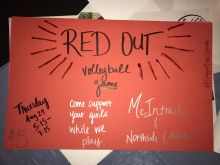 RED OUT
volleyball
game
Thursday
Aug 29
5:15-
7:15
come support
your girls
while we
play
McIntosh
Northside
#5